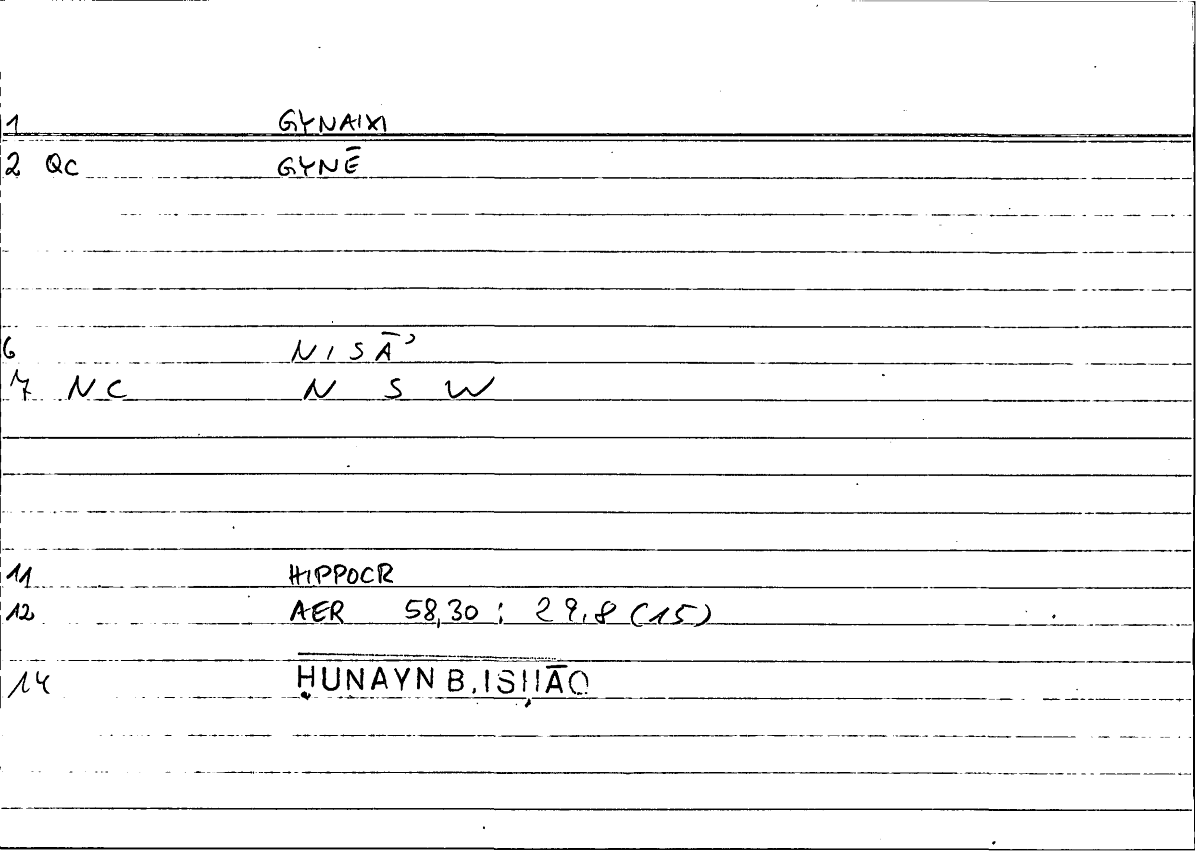 1 GYNAIXI
2 QC GYNĒ
6 NISĀʾ
7 NC N S W
11 HIPPOCR
12 AER 58,30 : 29,8 (15)
14 ḤUNAYN B. ISḤĀQ